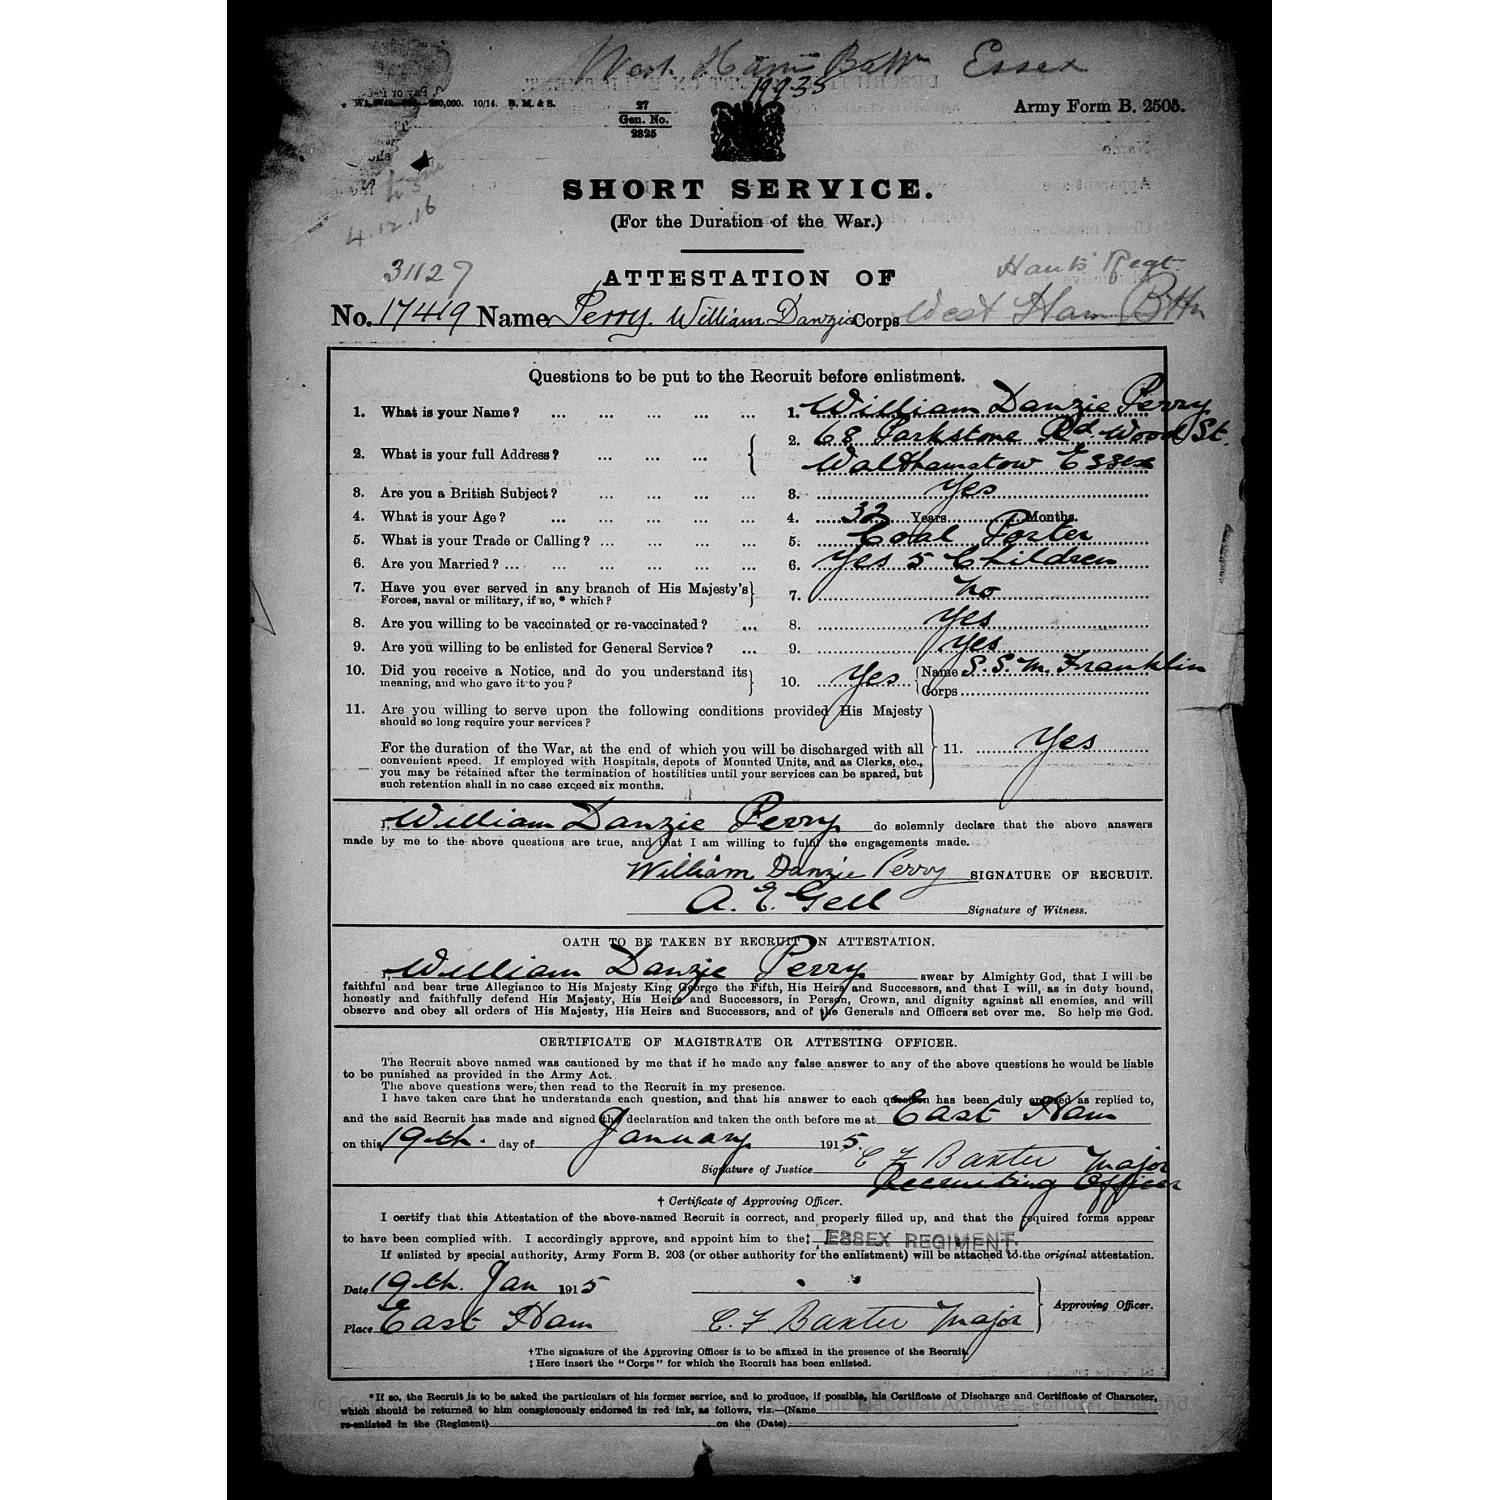 West Ham Battn Essex
19935
260,000. 10/14. B. M. & S.
27
Gen. No.
2825
Army Form B. 2505.
4.12.16
SHORT SERVICE.
(For the Duration of the War.)
31127
Hants Regt.
ATTESTATION OF
No. 17419 Name Perry. William Danzie Corps West Ham Bttn
Questions to be put to the Recruit before enlistment.
1. What is your Name? ... ... ... ... ... 1. William Danzie Perry
2. What is your full Address? ... ... ... 2. 68 Parkstone Rd. Wood St.
Walthamstow Essex
3. Are you a British Subject? ... ... ... ... 3. Yes
4. What is your Age? ... ... ... ... ... 4. 32 Years Months.
5. What is your Trade or Calling? ... ... ... ... 5. Coal Porter
6. Are you Married? ... ... ... ... ... ... 6. Yes 5 Children
7. Have you ever served in any branch of His Majesty's
Forces, naval or military, if so, * which? 7. No
8. Are you willing to be vaccinated or re-vaccinated? ... 8. Yes
9. Are you willing to be enlisted for General Service? ... 9. Yes
10. Did you receive a Notice, and do you understand its
meaning, and who gave it to you? 10. Yes Name S.S.M. Franklin
Corps
11. Are you willing to serve upon the following conditions provided His Majesty
should so long require your services?
For the duration of the War, at the end of which you will be discharged with all 11. Yes
convenient speed. If employed with Hospitals, depots of Mounted Units, and as Clerks, etc.,
you may be retained after the termination of hostilities until your services can be spared, but
such retention shall in no case exceed six months.
I, William Danzie Perry do solemnly declare that the above answers
made by me to the above questions are true, and that I am willing to fulfil the engagements made.
William Danzie Perry SIGNATURE OF RECRUIT.
A. E. Gell Signature of Witness.
OATH TO BE TAKEN BY RECRUIT ON ATTESTATION.
I, William Danzie Perry swear by Almighty God, that I will be
faithful and bear true Allegiance to His Majesty King George the Fifth, His Heirs and Successors, and that I will, as in duty bound,
honestly and faithfully defend His Majesty, His Heirs and Successors, in Person, Crown, and dignity against all enemies, and will
observe and obey all orders of His Majesty, His Heirs and Successors, and of the Generals and Officers set over me. So help me God.
CERTIFICATE OF MAGISTRATE OR ATTESTING OFFICER.
The Recruit above named was cautioned by me that if he made any false answer to any of the above questions he would be liable
to be punished as provided in the Army Act.
The above questions were then read to the Recruit in my presence.
I have taken care that he understands each question, and that his answer to each question has been duly entered as replied to,
and the said Recruit has made and signed the declaration and taken the oath before me at East Ham
on this 19th. day of January 1915.
Signature of Justice C F Baxter Major
Recruiting Officer
† Certificate of Approving Officer.
I certify that this Attestation of the above-named Recruit is correct, and properly filled up, and that the required forms appear
to have been complied with. I accordingly approve, and appoint him to the‡ ESSEX REGIMENT.
If enlisted by special authority, Army Form B. 203 (or other authority for the enlistment) will be attached to the original attestation.
Date 19th. Jan 1915
Approving Officer.
Place East Ham C. F Baxter Major
†The signature of the Approving Officer is to be affixed in the presence of the Recruit.
‡ Here insert the "Corps" for which the Recruit has been enlisted.
*If so, the Recruit is to be asked the particulars of his former service, and to produce, if possible, his Certificate of Discharge and Certificate of Character,
which should be returned to him conspicuously endorsed in red ink, as follows, viz.—(Name
re-enlisted in the (Regiment) on the (Date)
The National Archives, London, England